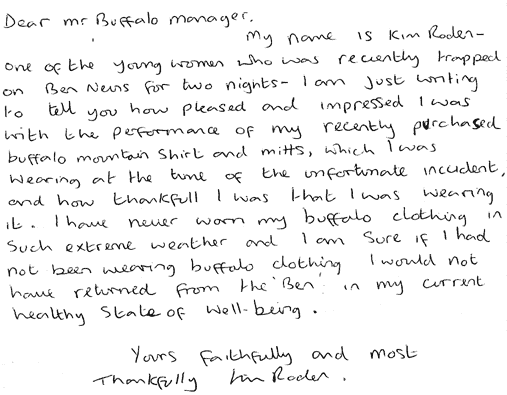 Dear mr Buffalo manager,
My name is Kim Roden-
one of the young women who was recently trapped
on Ben Nevis for two nights- I am just writing
to tell you how pleased and impressed I was
with the performance of my recently purchased
buffalo mountain shirt and mitts, which I was
wearing at the time of the unfortunate incident,
and how thankfull I was that I was wearing
it. I have never worn my buffalo clothing in
such extreme weather and I am sure if I had
not been wearing buffalo clothing I would not
have returned from the 'Ben' in my current
healthy state of well-being.
Yours faithfully and most
Thankfully Kim Roden.